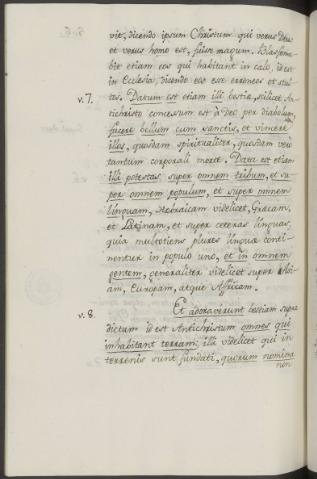 vit, dicendo ipsum Christum qui verus Deus
et verus homo est, fuisse magum. Blasfema-
bit etiam eos qui habitant in cælo, id est
in Ecclesia, dicendo eos esse erroneos et stul-
tos. Datum est etiam illi bestiæ, scilicet An-
v. 7.
tichristo concessum est à Deo per diabolum,
facere bellum cum sanctis, et vincere
illos, quosdam spiritualiter, quosdam vero
tantum corporali morte. Data est etiam
illi potestas, super omnem tribum, et su-
per omnem populum, et super omnem
linguam, Hebraicam videlicet, Græcam,
et Latinam, et super ceteras linguas,
quia multotiens plures linguæ conti-
nentur in populo uno, et in omnem
gentem, generaliter videlicet super Asi-
am, Europam, atque Affricam.
v. 8.
Et adoraverunt bestiam supra
dictam id est Antichristum omnes qui
inhabitant terram, illi videlicet qui in
terrenis sunt fundati, quorum nomina
non